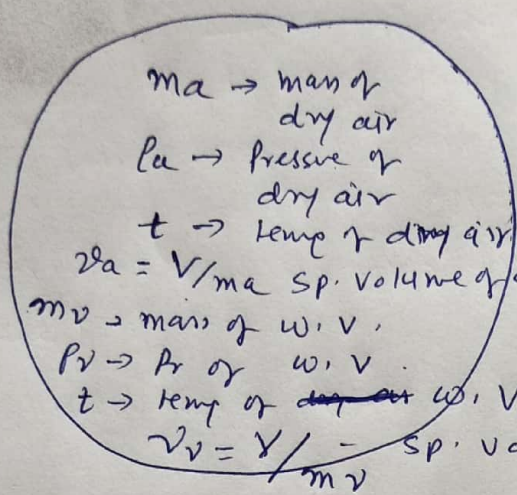 ma → mass of
dry air
Pa → Pressure of
dry air
t → temp of dry air
va = V/ma sp. volume of
mv → mass of w.v.
Pv → Pr of w.v.
t → temp of w.v
vv = V/mv - sp. vo